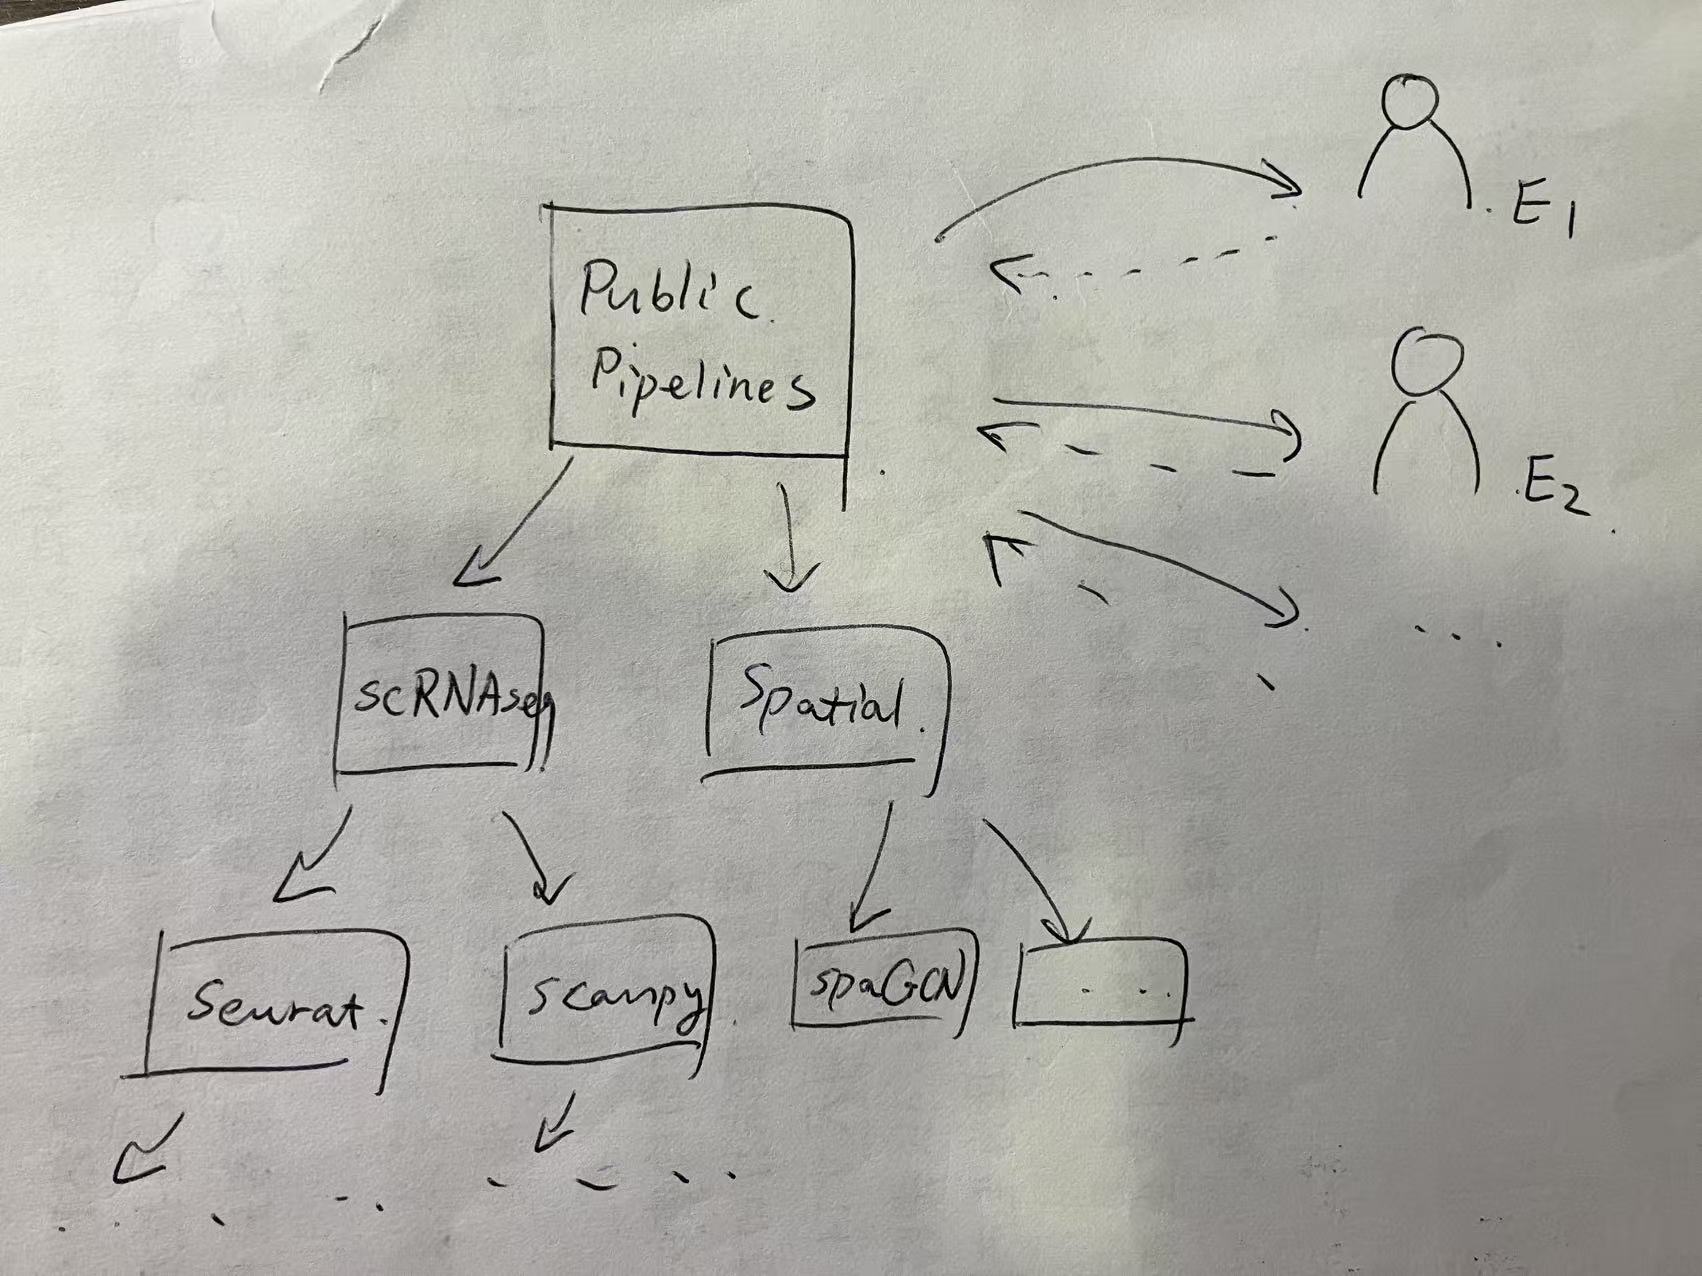 Public
Pipelines
E1
E2
...
scRNAseq
Spatial.
Seurat.
scanpy
spaGCN
...